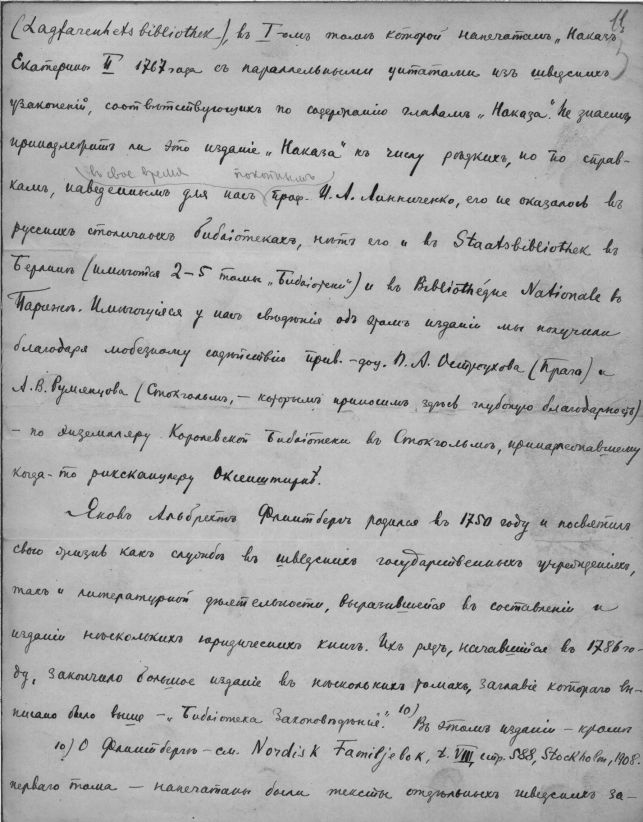 11
(Lagfarenhets bibliothek), въ I-омъ томѣ которой напечатанъ „Наказъ
Екатерины II 1767 года съ параллельными цитатами изъ шведскихъ
узаконенiй, соотвѣтствующихъ по содержанiю главамъ „Наказа". Не знаемъ,
принадлежитъ ли это изданiе „Наказа" къ числу рѣдкихъ, но по справ-
въ свое время покойнымъ
камъ, наведеннымъ для насъ проф. И. А. Линниченко, его не оказалось въ
русскихъ столичныхъ библiотекахъ, нѣтъ его и въ Staatsbibliothek въ
Берлинѣ (имѣются 2–5 томы „Библiотеки") и въ Bibliothéque Nationale въ
Парижѣ. Имѣющiяся у насъ свѣдѣнiя объ этомъ изданiи мы получили
благодаря любезному содѣйствiю прив.-доц. П. А. Остроухова (Прага) и
А. В. Румянцова (Стокгольмъ, – которымъ приносимъ здѣсь глубокую благодарность)
– по экземпляру Королевской Библiотеки въ Стокгольмѣ, принадлежавшему
когда-то риксканцлеру Оксенштирнѣ.
Яковъ Альбрехтъ Флинтбергъ родился въ 1750 году и посвятилъ
свою жизнь какъ службѣ въ шведскихъ государственныхъ учрежденiяхъ,
такъ и литературной дѣятельности, выразившейся въ составленiи и
изданiи нѣсколькихъ юридическихъ книгъ. Ихъ рядъ, начавшiйся въ 1786 го-
ду, закончило большое изданiе въ нѣсколькихъ томахъ, заглавiе котораго вы-
писано было выше – „Библiотека Законовѣдѣнiя". 10) Въ этомъ изданiи – кромѣ
10) О Флинтбергѣ – см. Nordisk Familjebok, t. VIII, стр. 588, Stockholm, 1908.
перваго тома – напечатаны были тексты отдѣльныхъ шведскихъ за-